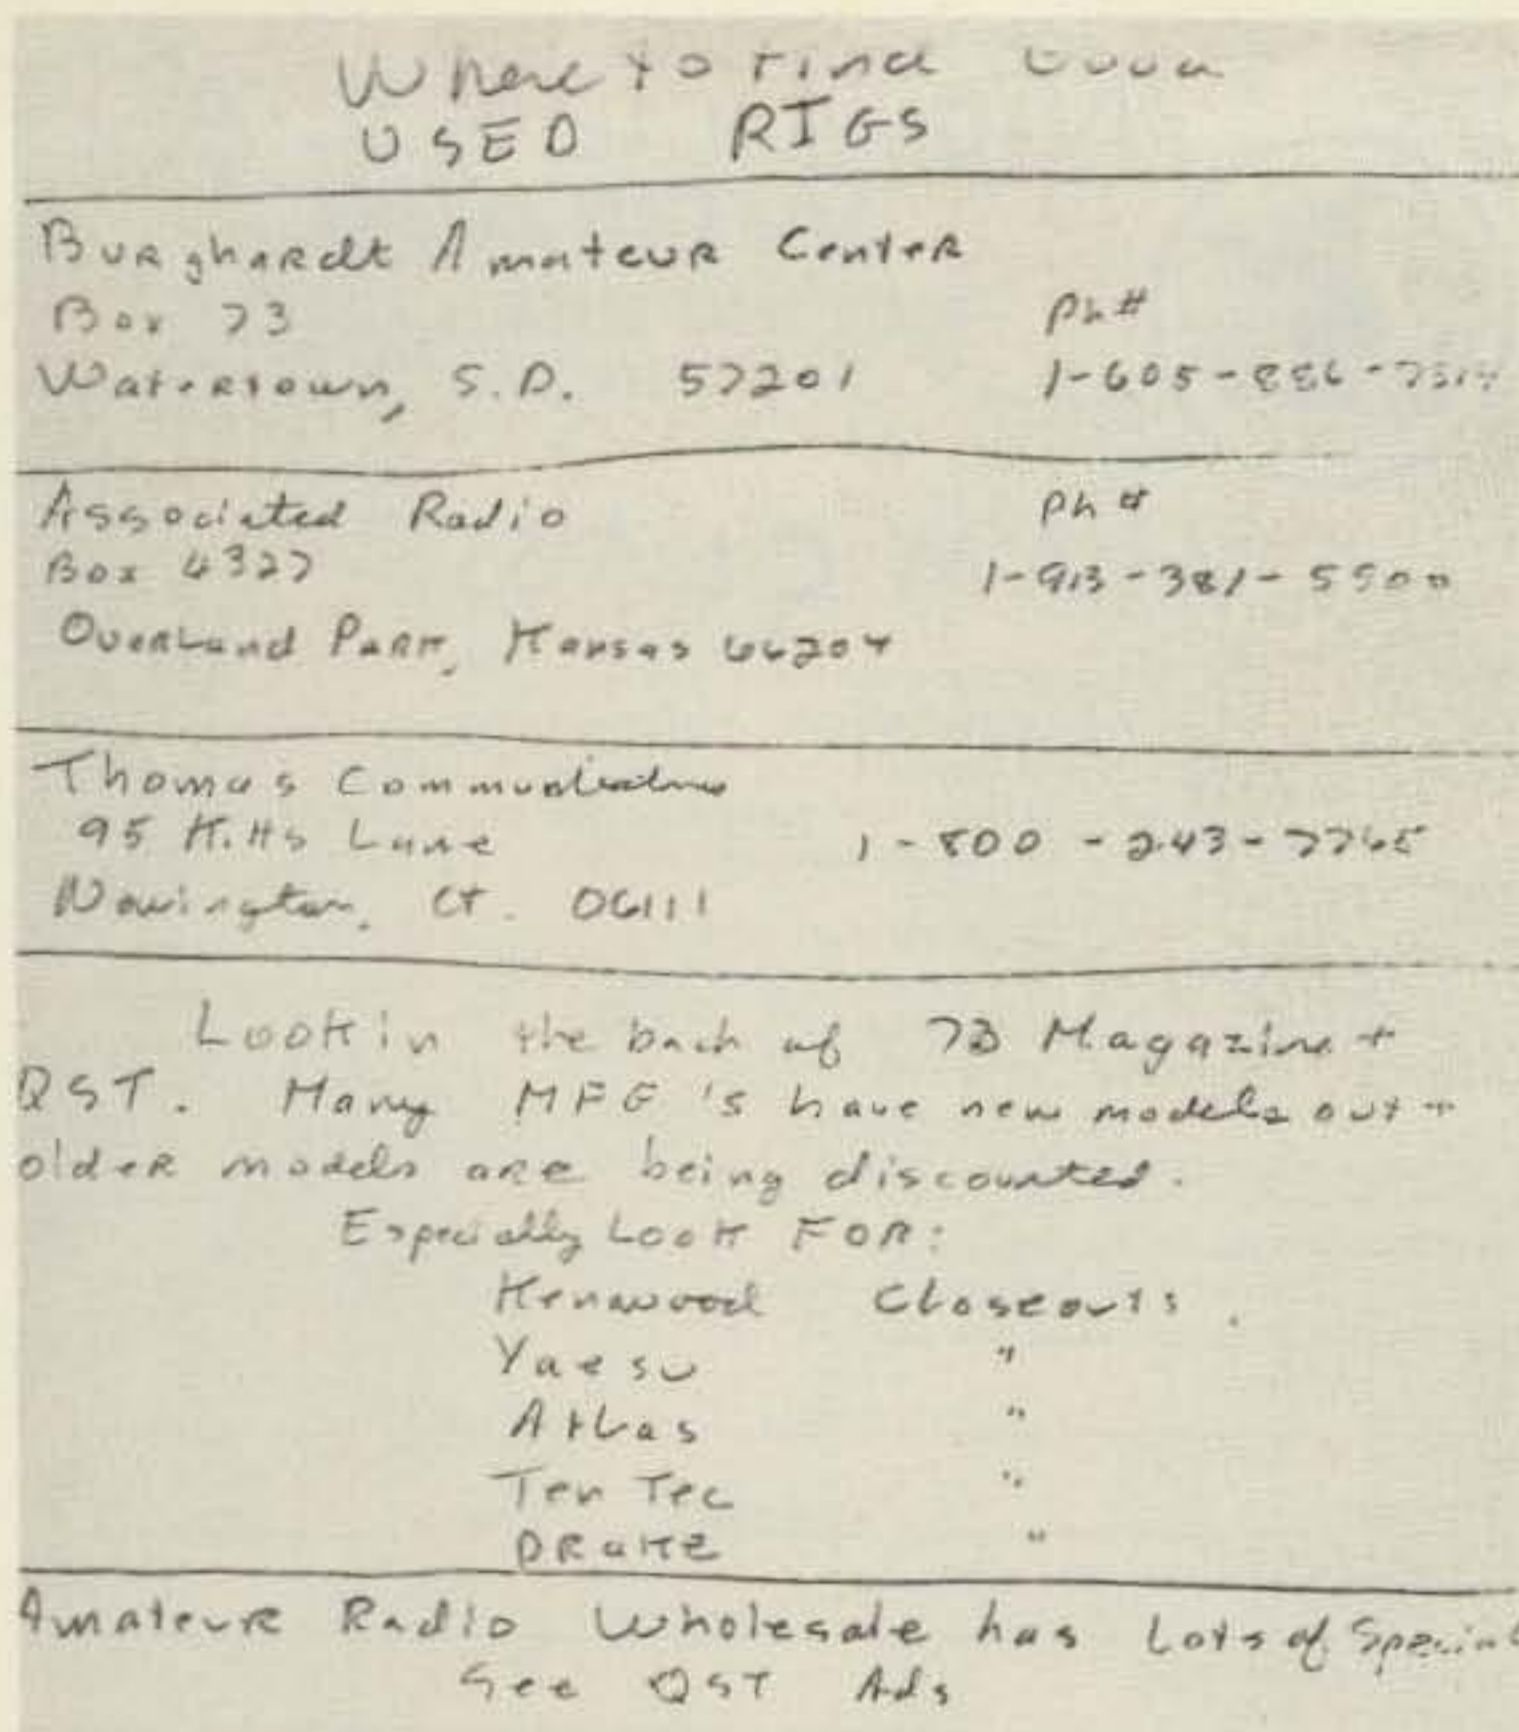 Where to Find Good
USED RIGS
Burghardt Amateur Center
Box 73
Ph#
Watertown, S.D. 57201 1-605-886-7314
Associated Radio Ph #
Box 4327
1-913-381-5900
Overland Park, Kansas 66204
Thomas Communications
95 Kitts Lane 1-800-243-7765
Newington, Ct. 06111
Look in the back of 73 Magazine +
QST. Many MFG's have new models out +
older models are being discounted.
Especially Look FOR:
Kenwood Closeouts.
Yaesu "
Atlas "
Ten Tec "
DRAKE "
Amateur Radio Wholesale has Lots of Special
See QST Ads